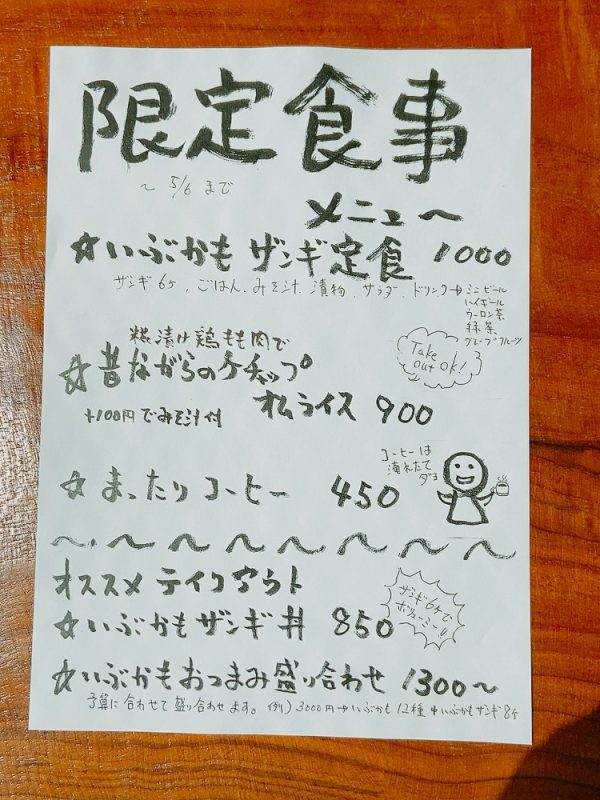 限定食事
～ 5/6 まで
メニュ～
☆いぶかも ザンギ定食 1000
ザンギ6ヶ、ごはん、みそ汁、漬物、サラダ、ドリンク→ミニビール
ハイボール
ウーロン茶
緑茶
グレープフルーツ
糀漬け鶏もも肉で
☆昔ながらのケチャップ
オムライス 900
+100円でみそ汁付
Take out ok!
☆まったりコーヒー 450
コーヒーは
淹れたて
ダヨ
オススメ テイクアウト
☆いぶかもザンギ丼 850
ザンギ6ケで
ボリューミー!!
☆いぶかもおつまみ盛り合わせ 1300～
予算に合わせて盛り合わせます。例)3000円→いぶかも12種+いぶかもザンギ8ヶ